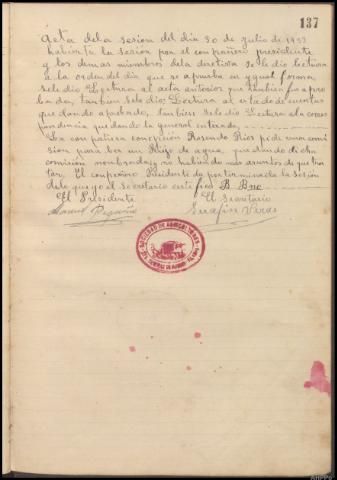 137
Acta dela sesion del dia 30 de julio de 1933
habierta la sesion por el compañero presidente
y los demas miembros dela diretiva se le dio lectura
a la orden del dia que se aprueba en ygual forma,
sele dio Lectura al acta anterior que tambien fu apro
bada, tambien sele dio; Lectura al estado de cuentas
quedando aprobado, tambien sele dio Lectura ala corres
pondencia quedando la general enterada
La compañera concepcion Rosendo Rios pide una comi
sion para ber un Riego de agua, quedando dicha
comision nombrada y no habiendo mas asuntos de que tra
tar. El compañero Presidente da por terminada la Sesion
dela que yo el Secretario certifico B. Bno
El Presidente El Secretario
Manuel Serafin Veras
SOCIEDAD DE AGRICULTORES